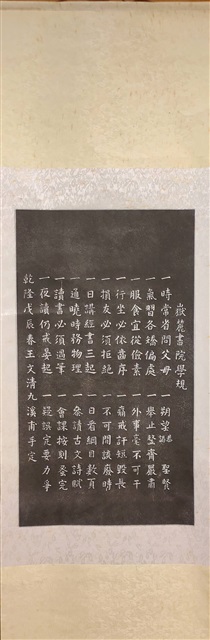 嶽麓書院學規
一時常省問父母　一朔望恭謁聖賢
一氣習各矯偏處　一舉止整齊嚴肅
一服食宜從儉素　一外事毫不可干
一行坐必依齒序　一痛戒訐短毀長
一損友必須拒絕　一不可閒談廢時
一日講經書三起　一日看綱目數頁
一通曉時務物理　一參讀古文詩賦
一讀書必須過筆　一會課按刻蚤完
一夜讀仍戒晏起　一疑誤定要力爭
乾隆戊辰春王文清九溪甫手定